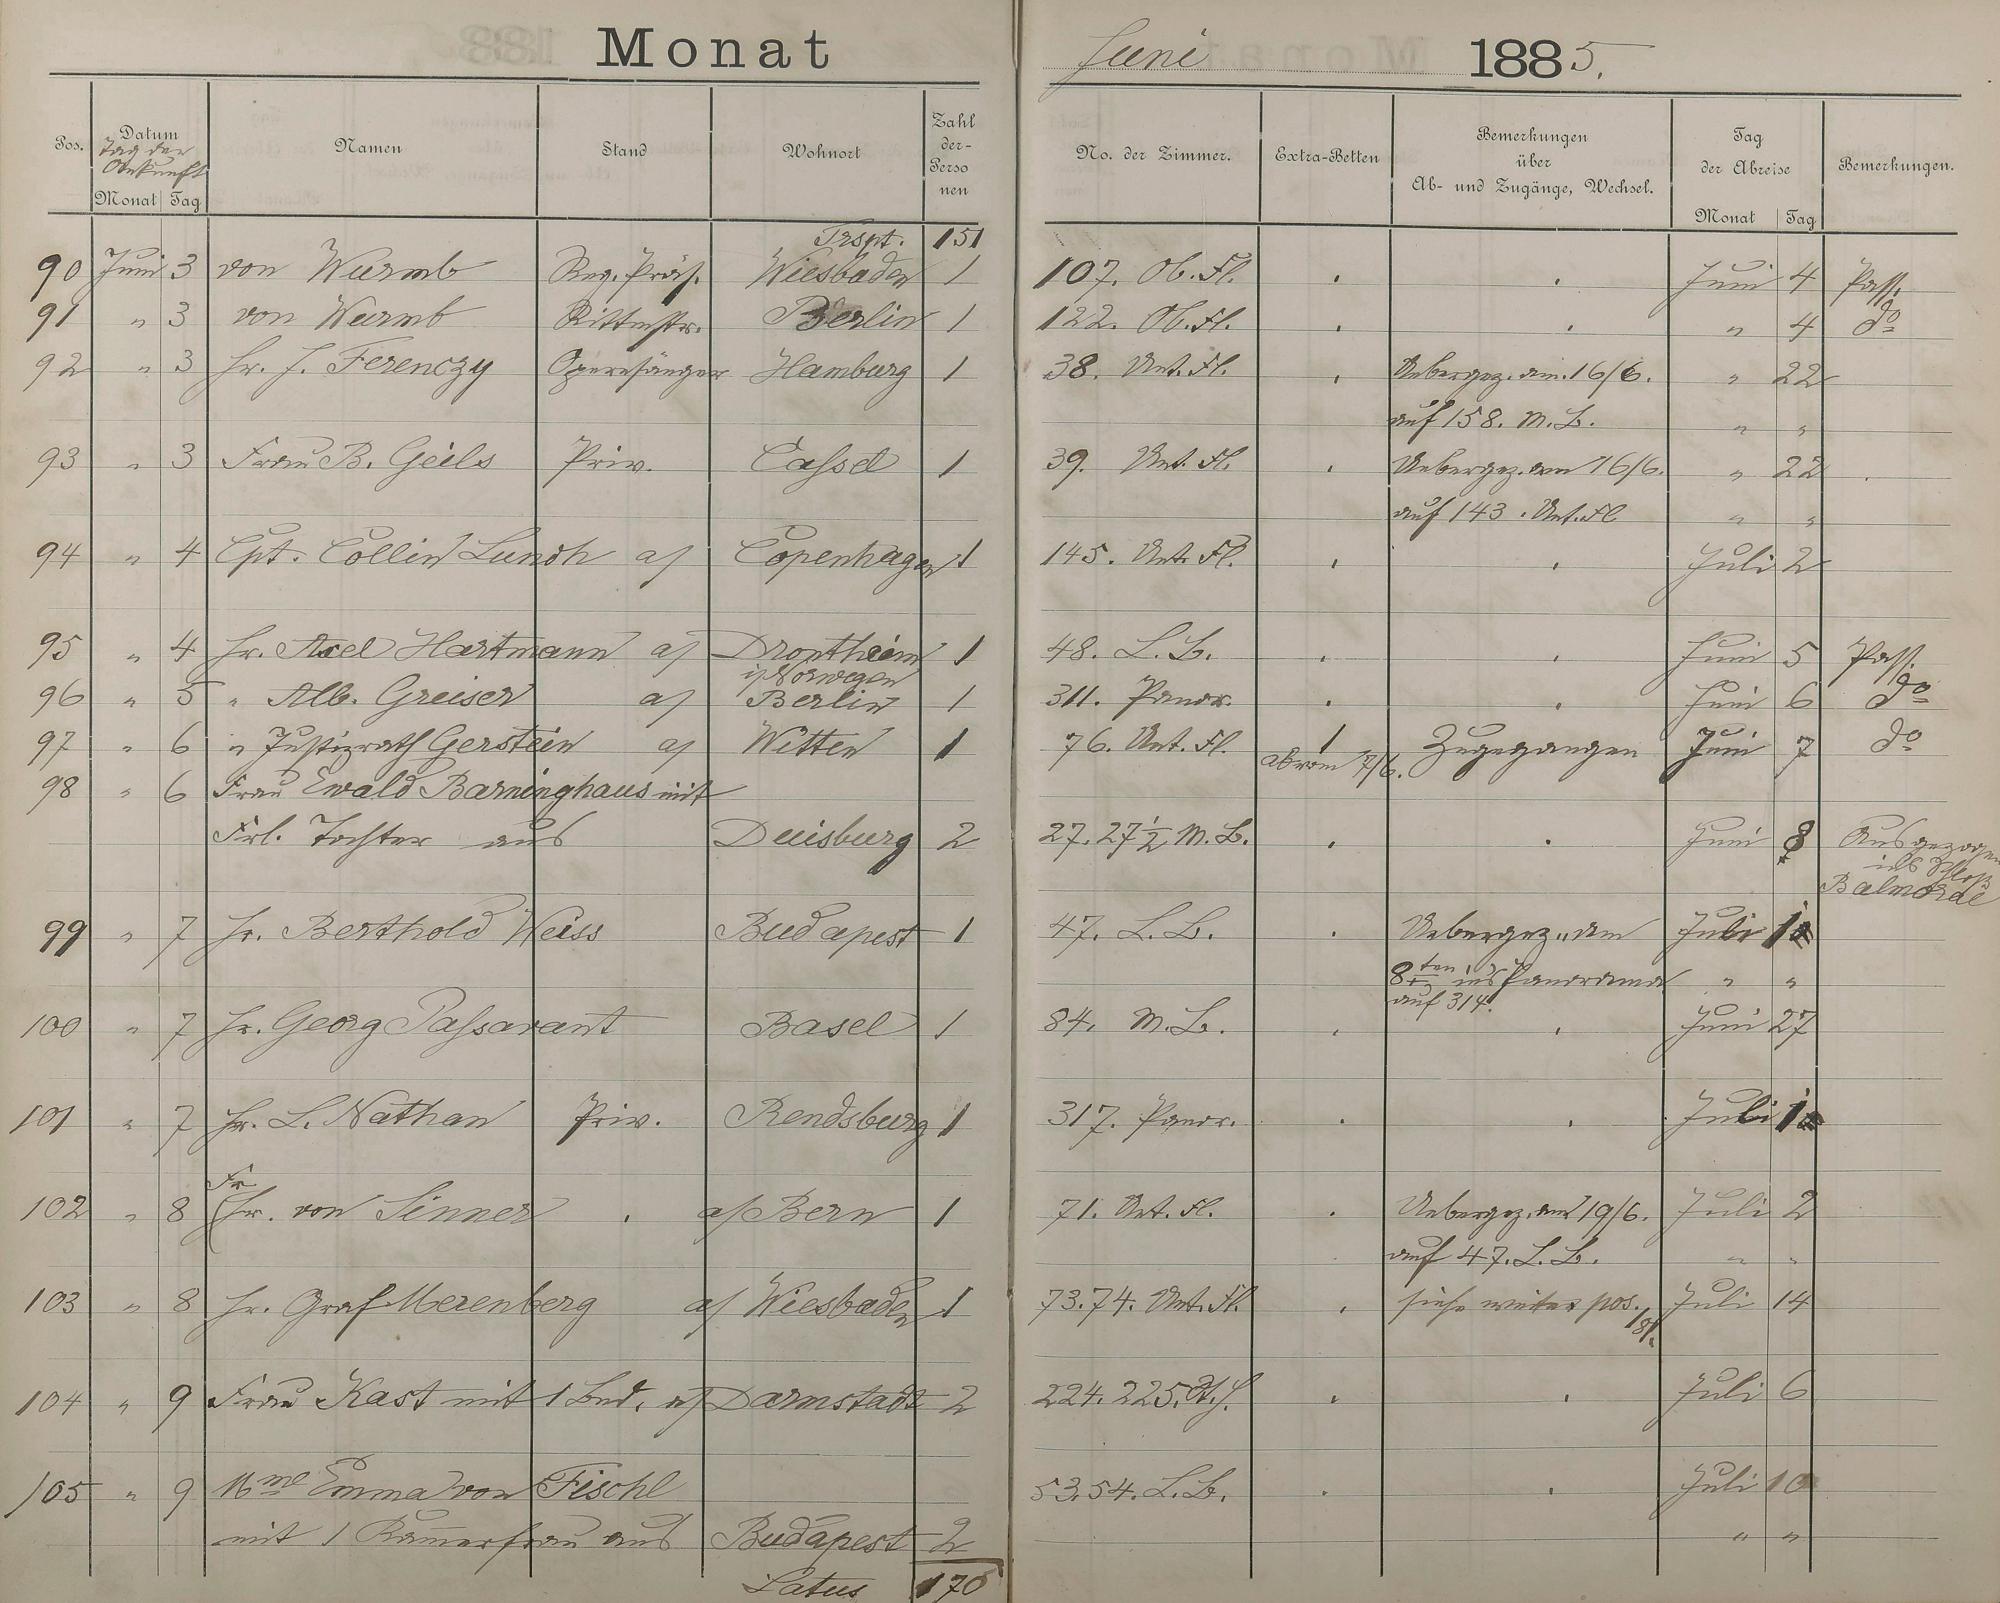 Monat Juni 1885.
Pos. Datum Namen Stand Wohnort Zahl der Perso nen No. der Zimmer. Extra-Betten Bemerkungen über Ab- und Zugänge, Wechsel. Tag der Abreise Bemerkungen.
Tag der Ankunft
Monat Tag Monat Tag
Trspt. 151
90 Juni 3 von Wurmb Reg. Präs. Wiesbaden 1 107. Ob. Fl. . . Juni 4 Pass.
91 " 3 von Wurmb Rittmstr. Berlin 1 122. Ob. Fl. . . " 4 do
92 " 3 Hr. J. Ferenczy Opernsänger Hamburg 1 38. Unt. Fl. . Uebergez. am 16/6. " 22
auf 158. M. B. " "
93 " 3 Frau B. Geils Priv. Cassel 1 39. Unt. Fl. . Uebergez. am 16/6. " 22
auf 143. Unt. Fl " "
94 " 4 Cpt. Collin Lundh a/ Copenhagen 1 145. Unt. Fl. . . Juli 2
95 " 4 Hr. Axel Hartmann a/ Drontheim 1 48. L. B. . . Juni 5 Pass.
i/ Norwegen
96 " 5 " Alb. Greiser a/ Berlin 1 311. Panor. . . Juni 6 do
97 " 6 " Justizrath Gerstein a/ Witten 1 76. Unt. Fl. 1 Zugegangen Juni 7 do
ab vom 7/6.
98 " 6 Frau Ewald Barninghaus mit
Frl. Tochter aus Duisburg 2 27. 27 1/2 M. B. . . Juni 8 Ausgezogen
ins Schloß
Balmoral
99 " 7 Hr. Berthold Weiss Budapest 1 47. L. B. . Uebergez. am Juli 1
8ten ins Panorama " "
auf 314.
100 " 7 Hr. Georg Passavant Basel 1 84. M. B. . . Juni 27
101 " 7 Hr. L. Nathan Priv. Rendsburg 1 317. Panor. . . Juli 1
Fr
102 " 8 Hr. von Sinner . a/ Bern 1 71. Unt. Fl. . Uebergez. am 19/6. Juli 2
auf 47. L. B. " "
103 " 8 Hr. Graf Merenberg a/ Wiesbaden 1 73. 74. Unt. Fl. . siehe weiter pos. Juli 14
181.
104 " 9 Frau Kast mit 1 Bed. a/ Darmstadt 2 224. 225. . . Juli 6
105 " 9 Mme Emma von Fischl 53. 54. L. B. . . Juli 10
mit 1 Kammerfrau aus Budapest 2 " "
Latus 170